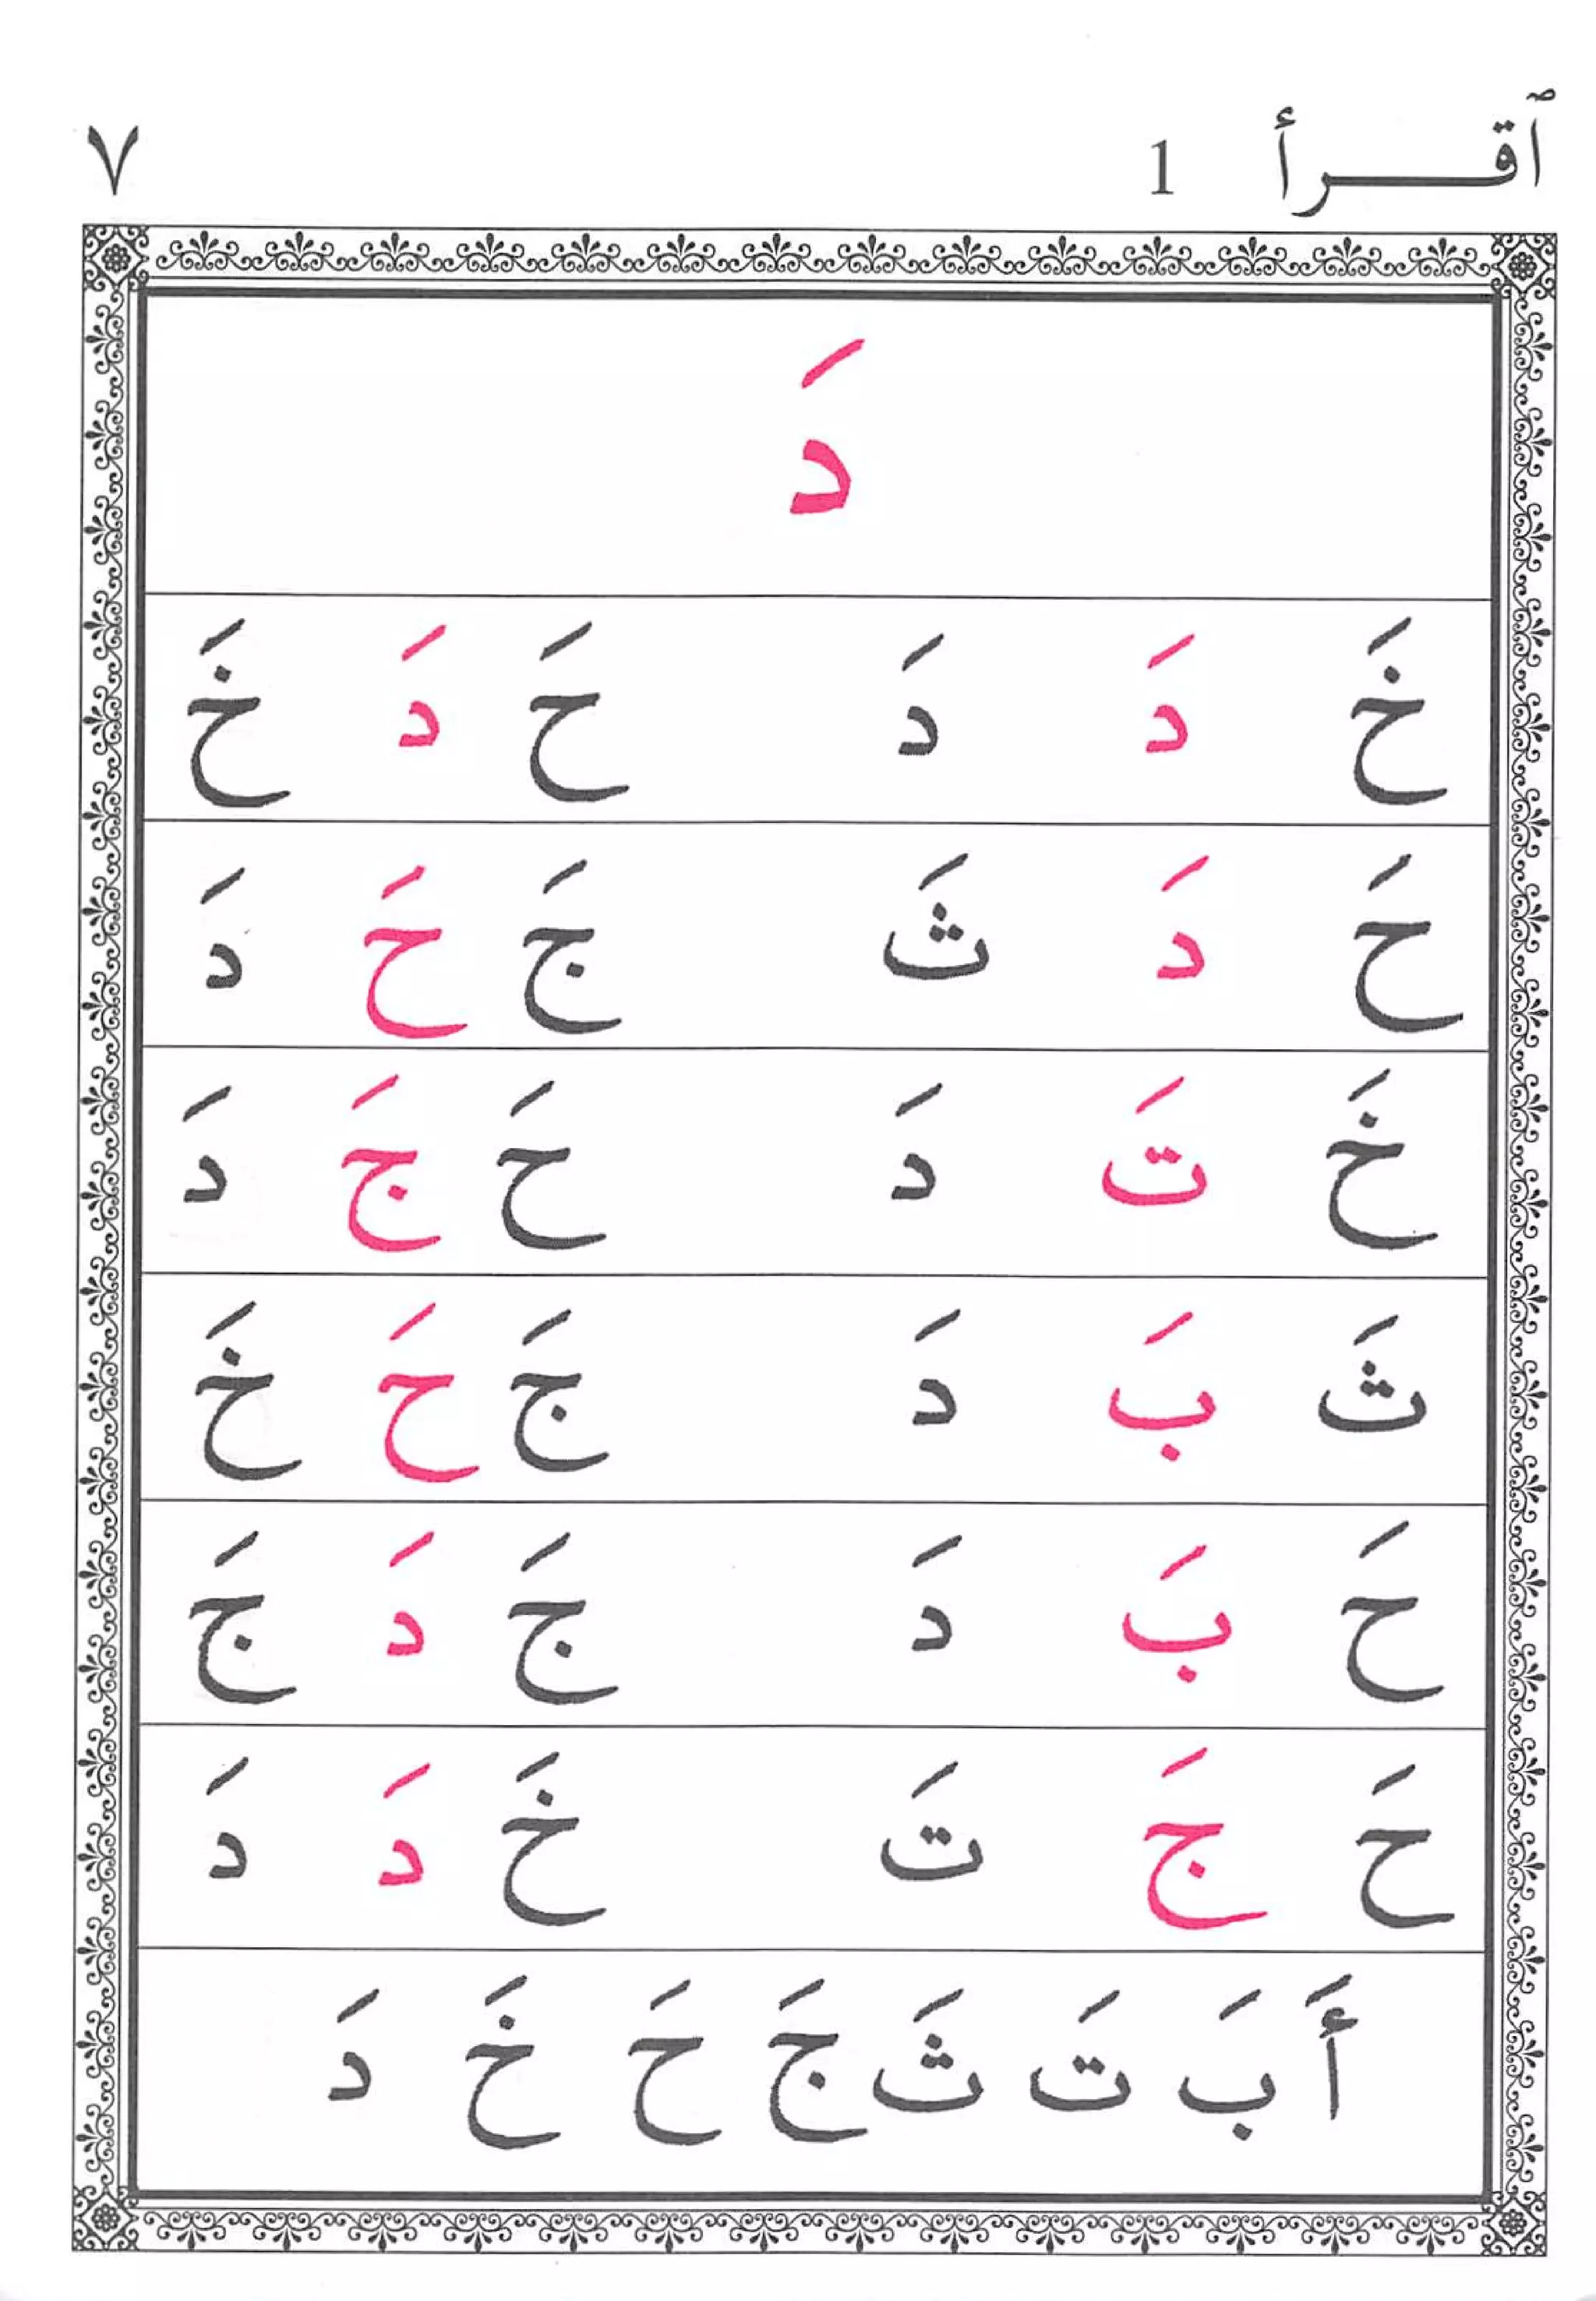 ٱقـــرأ 1 ٧
دَ
خَ دَ دَ حَ دَ خَ
حَ دَ ثَ جَ حَ دَ
خَ تَ دَ حَ جَ دَ
ثَ بَ دَ جَ حَ خَ
حَ بَ دَ جَ دَ جَ
حَ جَ تَ خَ دَ دَ
أَ بَ تَ ثَ جَ حَ خَ دَ